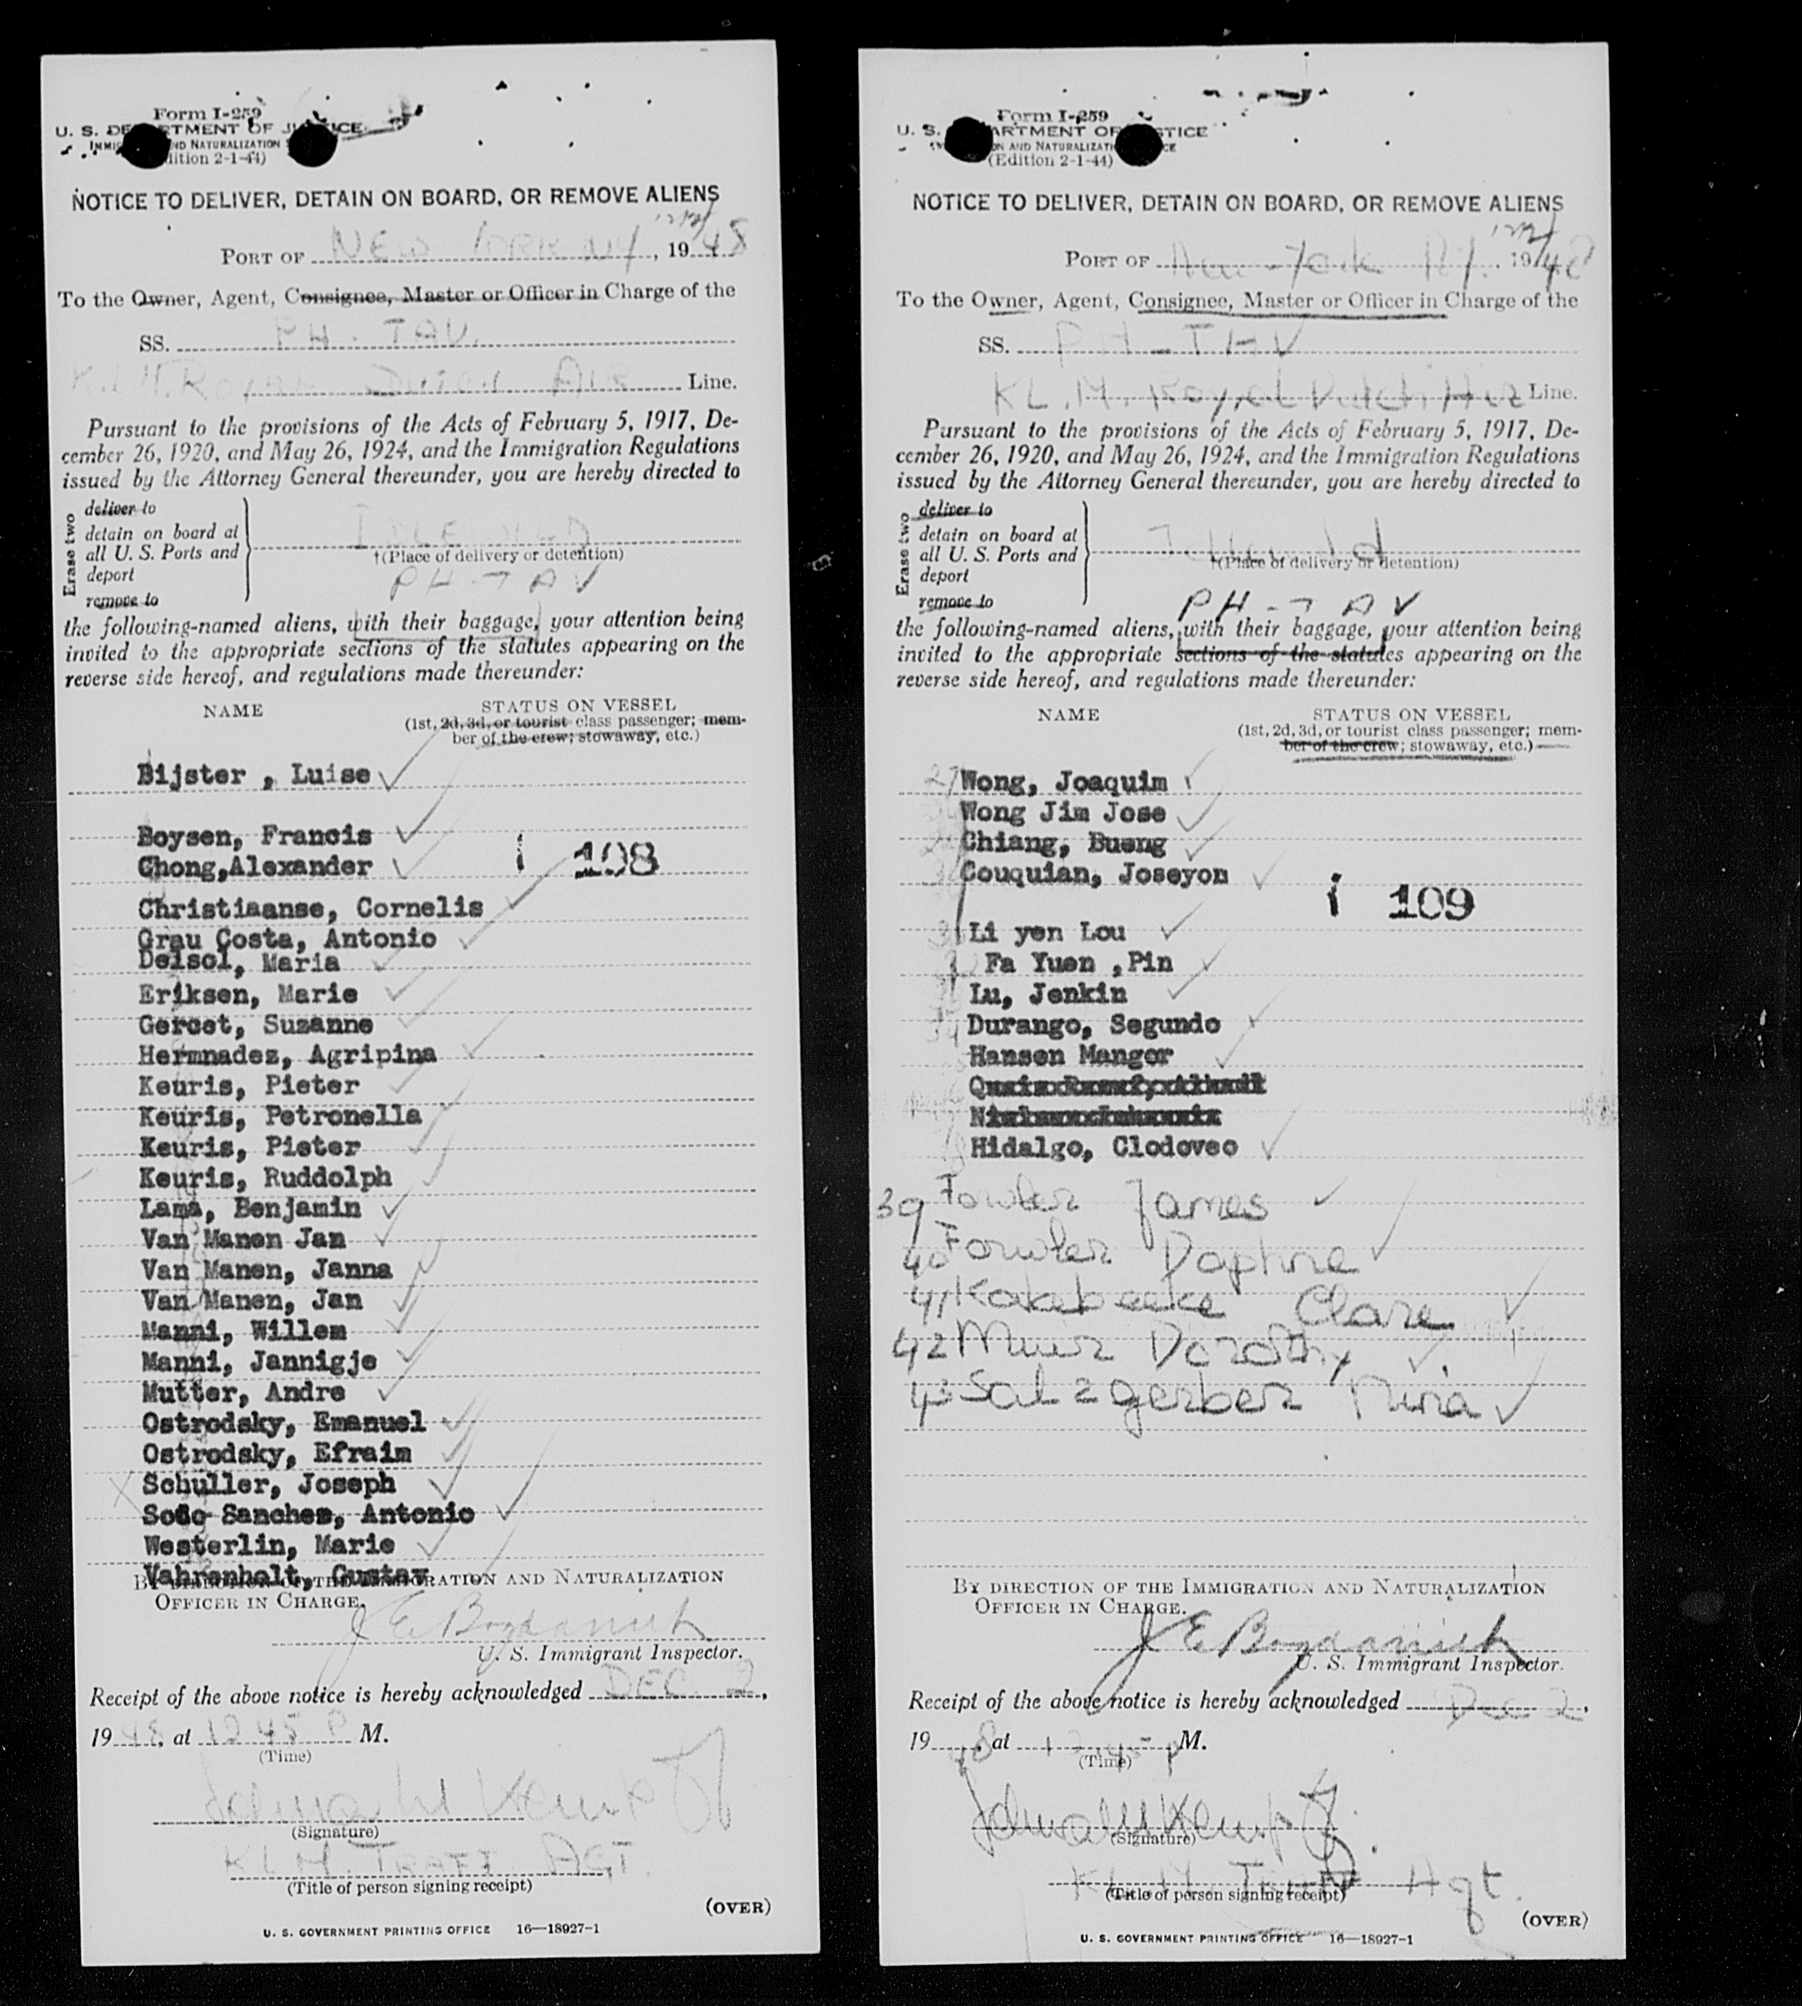 Form I-259
U. S. DEPARTMENT OF JUSTICE
IMMIGRATION AND NATURALIZATION
(Edition 2-1-44)
NOTICE TO DELIVER, DETAIN ON BOARD, OR REMOVE ALIENS
PORT OF NEW YORK NY, 1948
To the Owner, Agent, Consignee, Master or Officer in Charge of the
SS. PH-TAV.
K.L.M. ROYAL DUTCH AIR Line.
Pursuant to the provisions of the Acts of February 5, 1917, De-
cember 26, 1920, and May 26, 1924, and the Immigration Regulations
issued by the Attorney General thereunder, you are hereby directed to
Erase two
deliver to
detain on board at
all U. S. Ports and
deport
remove to
IDLEWILD
†(Place of delivery or detention)
PH-TAV
the following-named aliens, with their baggage, your attention being
invited to the appropriate sections of the statutes appearing on the
reverse side hereof, and regulations made thereunder:
NAME STATUS ON VESSEL
(1st, 2d, 3d, or tourist class passenger; mem-
ber of the crew; stowaway, etc.)
Bijster , Luise
Boysen, Francis
Chong,Alexander
i 108
Christiaanse, Cornelis
Grau Costa, Antonio
Delsol, Maria
Eriksen, Marie
Gercet, Suzanne
Hermnadez, Agripina
Keuris, Pieter
Keuris, Petronella
Keuris, Pieter
Keuris, Ruddolph
Lama, Benjamin
Van Manen Jan
Van Manen, Janna
Van Manen, Jan
Manni, Willem
Manni, Jannigje
Mutter, Andre
Ostrodsky, Emanuel
Ostrodsky, Efraim
Schuller, Joseph
Soto Sanchez, Antonio
Westerlin, Marie
Vahrenholt, Gustav
BY DIRECTION OF THE IMMIGRATION AND NATURALIZATION
OFFICER IN CHARGE.
J E Bogdanich
U. S. Immigrant Inspector.
Receipt of the above notice is hereby acknowledged DEC 2,
1948, at 12 45 P M.
(Time)
(Signature)
KLM. TRAFF AGT.
(Title of person signing receipt)
(OVER)
U. S. GOVERNMENT PRINTING OFFICE 16—18927-1
Form I-259
U. S. DEPARTMENT OF JUSTICE
IMMIGRATION AND NATURALIZATION SERVICE
(Edition 2-1-44)
NOTICE TO DELIVER, DETAIN ON BOARD, OR REMOVE ALIENS
PORT OF New York NY., 1948
To the Owner, Agent, Consignee, Master or Officer in Charge of the
SS. PH-TAV
KL.M. Royal Dutch Air Line.
Pursuant to the provisions of the Acts of February 5, 1917, De-
cember 26, 1920, and May 26, 1924, and the Immigration Regulations
issued by the Attorney General thereunder, you are hereby directed to
Erase two
deliver to
detain on board at
all U. S. Ports and
deport
remove to
Idlewild
†(Place of delivery or detention)
PH-TAV
the following-named aliens, with their baggage, your attention being
invited to the appropriate sections of the statutes appearing on the
reverse side hereof, and regulations made thereunder:
NAME STATUS ON VESSEL
(1st, 2d, 3d, or tourist class passenger; mem-
ber of the crew; stowaway, etc.)
27 Wong, Joaquim
Wong Jim Jose
Chiang, Bueng
Couquian, Joseyon
i 109
Li yen Lou
Fa Yuen ,Pin
Lu, Jenkin
34 Durango, Segundo
Hansen Mangor
Hidalgo, Clodoveo
39 Fowler James
40 Fowler Daphne
41 Kakebeeke Clare
42 Muir Dorothy
43 Salzgerber Nina
BY DIRECTION OF THE IMMIGRATION AND NATURALIZATION
OFFICER IN CHARGE.
J E Bogdanich
U. S. Immigrant Inspector.
Receipt of the above notice is hereby acknowledged Dec 2,
1948, at 12 45 P M.
(Time)
(Signature)
KLM. Agt.
(Title of person signing receipt)
(OVER)
U. S. GOVERNMENT PRINTING OFFICE 16—18927-1